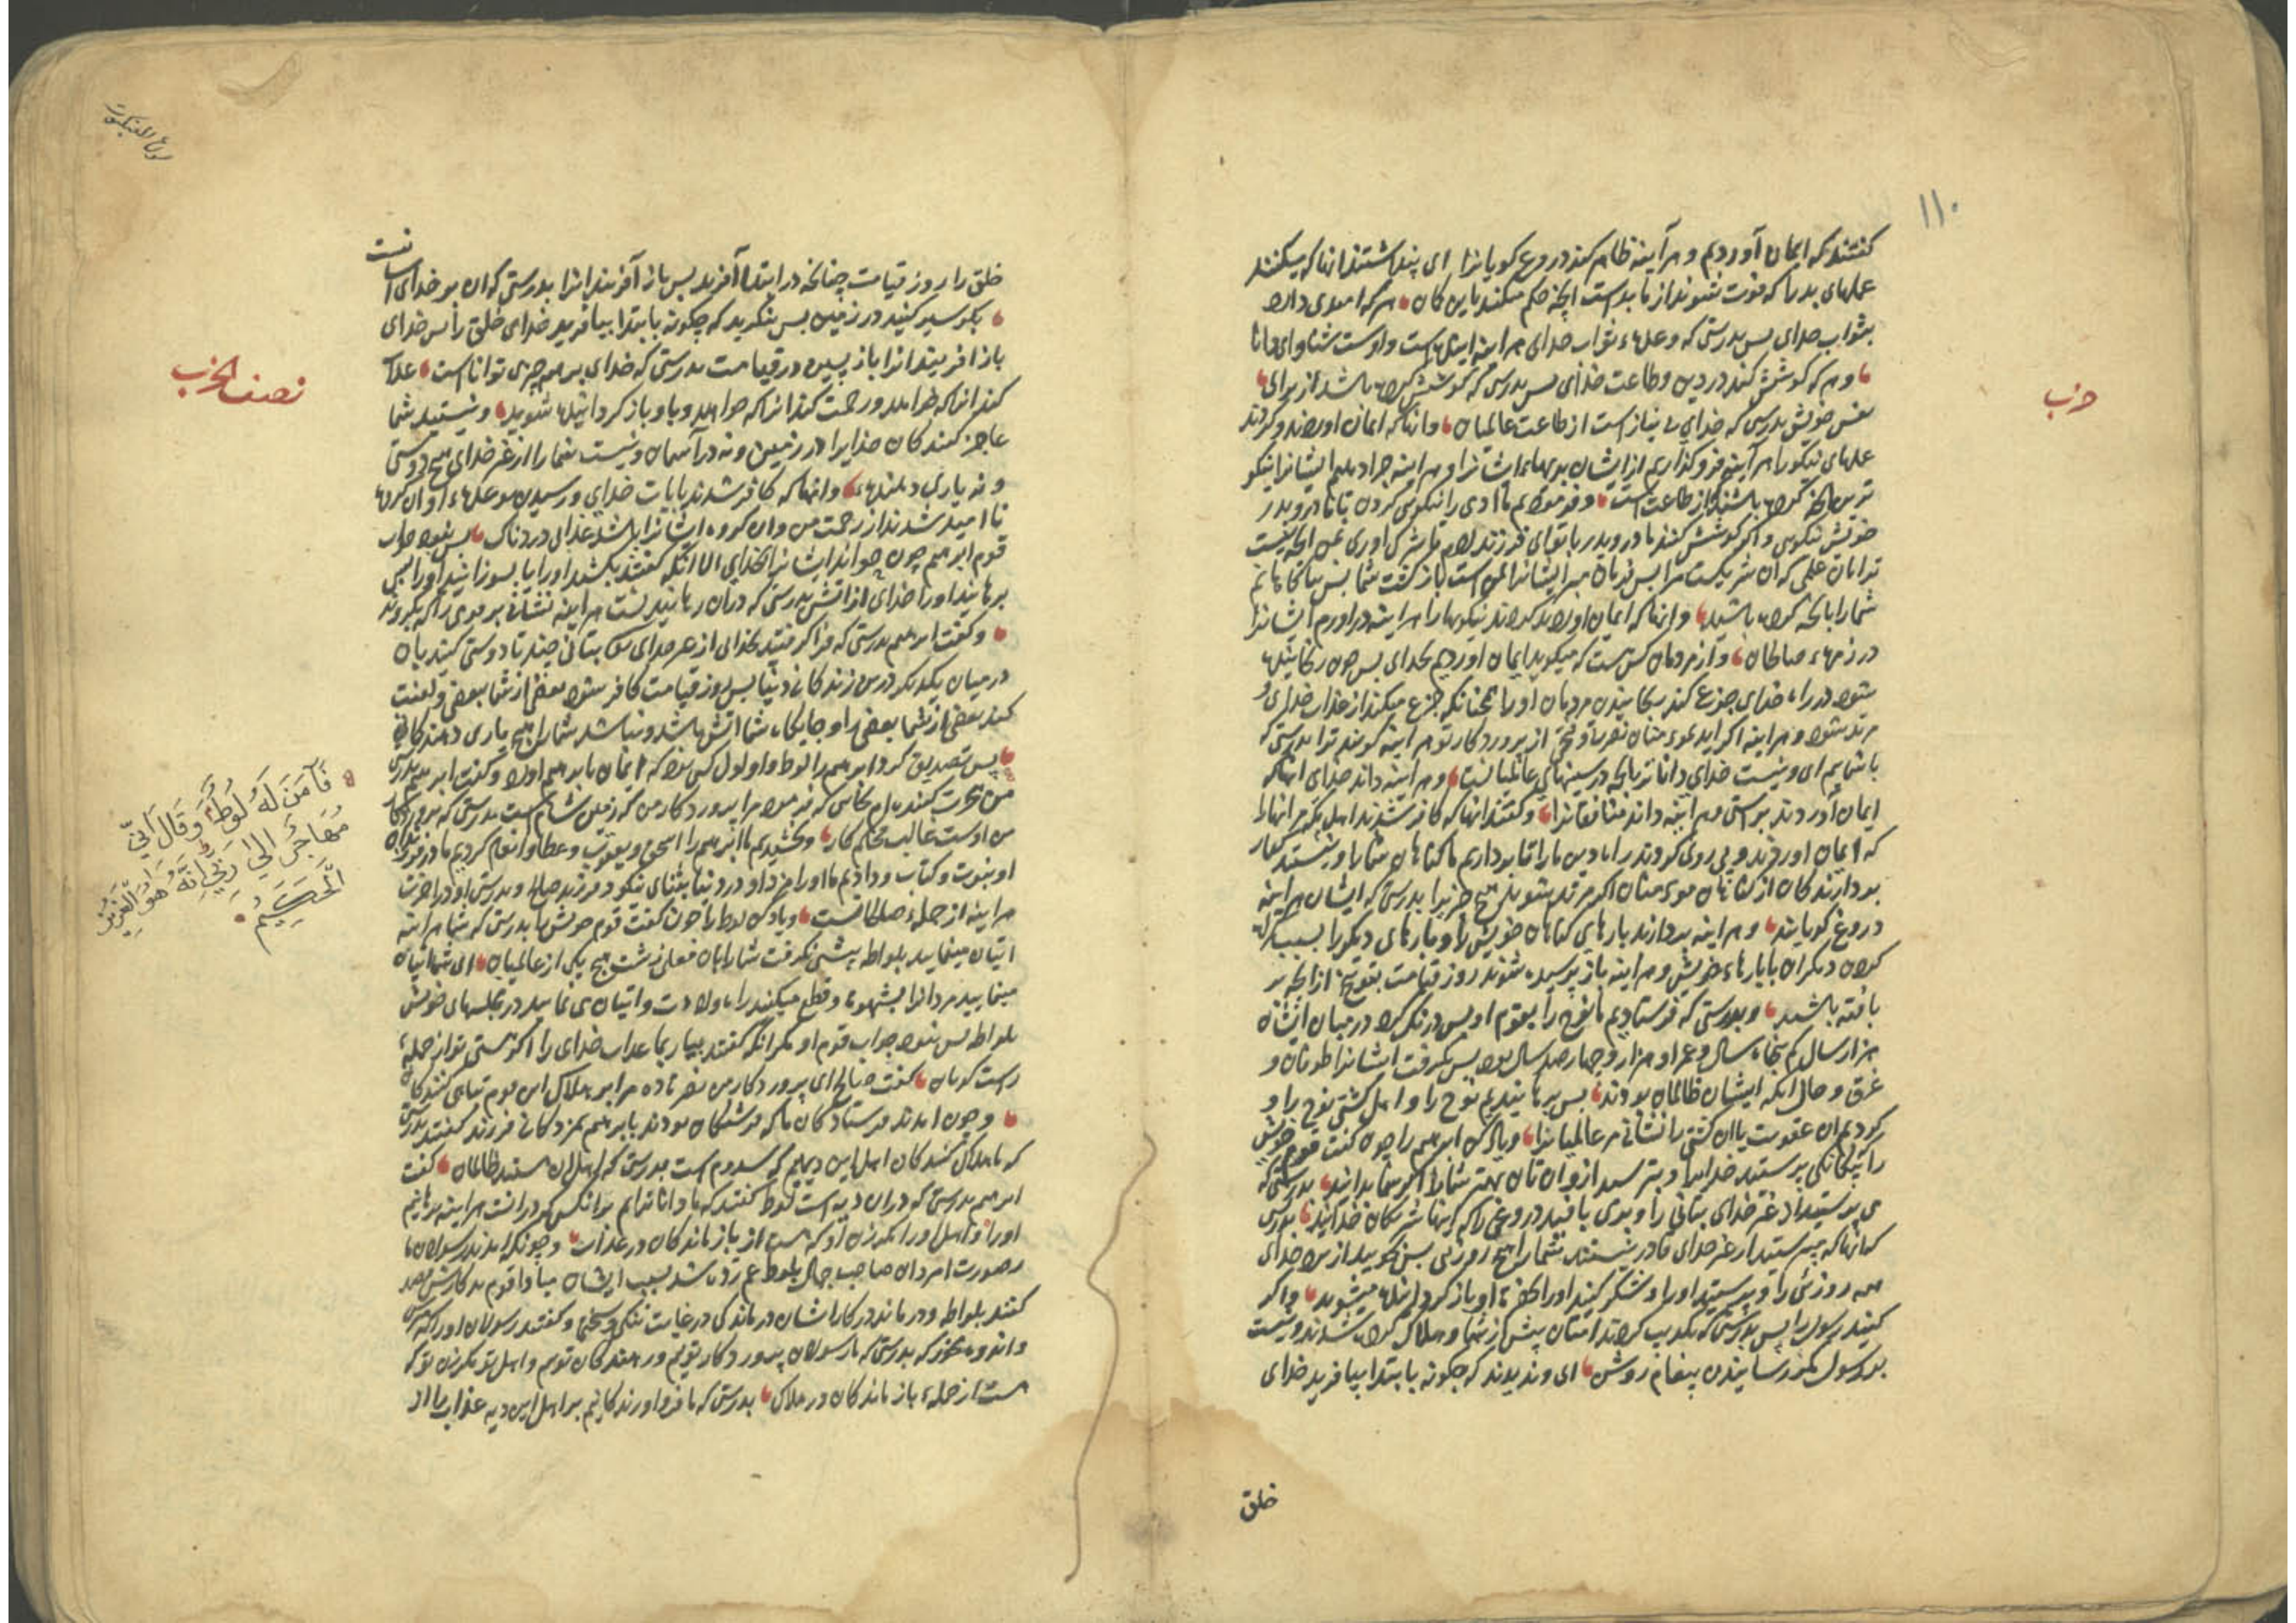 ۱۱۰
حزب
گفتند که ایمان آوردیم و هرآینه ظاهر کند دروغ کویانرا ای پنداشتند انها که میکنند
عملهای بد را که فوت شوند از ما بد است انچه حکم میکنند باین کان هر که امیدی دارد
بثواب خدای پس بدرستی که وعدهء ثواب خدای هر اینه اینده است و اوست شنوای دانا
و هر که کوشش کند در دین و طاعت خدای پس بدرستی که کوشش کرده باشد از برای
نفس خویش بدرستی که خدای بی نیاز است از طاعت عالمیان وانها که ایمان اوردند و کردند
عملهای نیکو را هر آینه فرو کذاریم از ایشان بدیهای ایشانرا و هر اینه جزا دهیم ایشانرا نیکو
ترین انچه کرده باشند از طاعت است و فرمودیم ما ادمی را نیکویی کردن با مادر و پدر
خویش نیکویی و اکر کوشش کنند مادر و پدر با تو ای فرزند ادم تا شرک اوری بمن انچه نیست
ترا بان علمی که ان شریکست مرا پس فرمان مبر ایشانرا بمن است باز کشت شما پس بیاکاهانم
شما را بانچه کرده باشید وانها که ایمان اوردند کردند نیکویها را هر اینه در اورم ایشانرا
در زمرهء صالحان و از مردمان کس است که میکوید ایمان اوردیم بخدای پس چون رنجانیده
شود در راه خدای جزع کند برنجانیدن مردمان او را همچنانکه جزع میکند از عذاب خدای و
مرتد شود و هر اینه اکر اید مومنان نصرة و فتحی از پروردکار تو هر اینه کویند ترا بدرستی که
با شماییم ای و نیست خدای داناتر بانچه در سینهای عالمیانست و هر اینه داند خدای انها که
ایمان آوردند براستی و هر اینه داند منافقانرا و کفتند انها که کافر شدند اهل مکه مر انها را
که ایمان اوردند و پی روی کردند راه دین ما را تا برداریم ما کناهان شما را و نیستند کفار
بردارندکان از کناهان مومنان اکر مرتد شوند هیچ چیز را بدرستی که ایشان هر اینه
دروغ کویانند و هر اینه بردارند بارهای کناهان خویش را و بارهای دیکر را بسبب
کردن دیکران با بارهاء خویش و هر اینه باز پرسیده شوند روز قیامت بتوبیخ از انچه بر
بافته باشند و بدرستی که فرستادیم ما نوح را بقوم او پس درنک کرد در میان ایشان
هزار سال کم پنجاه سال و عمر او هزار و چهار صد سال بود پس بکرفت ایشانرا طوفان و
غرق و حال انکه ایشان ظالمان بودند پس برهانیدیم نوح را و اهل کشتی نوح را و
کردیم ان عقوبت یا ان کشتی را نشانی مر عالمیانرا و یاد کن ابرهیم را چون کفت قوم خویش
را بیکانکی پرستید خدایرا و بترسید ازو ان تان بهتر شما را اکر شما بدانید بدرستی که
می پرستید از غیر خدای بتانی را و برمی بافید دروغی را که اینها شریکان خدایند بدرستی
که انها که میپرستید از غیر خدای قادر نیستند شما را هیچ روزیی پس بجویید از نزد خدای
همه روزی را و بپرستید او را و شکر کنید او را بطرف او باز کردانیده میشوید و اکر
کنید رسول را پس بدرستی که تکذیب کردند امتان پیش از شما و هلاک کرده شدند و نیست
بر رسول مکر رسانیدن پیغام روشن ای و ندیدند که چکونه بابتدا بیافرید خدای
خلق
سورة العنکبوت
خلق را روز قیامت چنانچه در ابتدا آفرید پس باز آفریند انرا بدرستی که ان بر خدای اسانست
بکو سیر کنید در زمین پس بنکرید که چکونه بابتدا بیافرید خدای خلق را پس خدای
باز افریند انرا باز پسین در قیامت بدرستی که خدای بر همه چیزی تواناست عذاب
کند انرا که خواهد و رحمت کند انرا که خواهد و باو باز کردانیده شوید و نیستید شما
عاجز کنندکان خدایرا در زمین و نه در آسمان و نیست شما را از غیر خدای هیچ دوستی
و نه یاری دهنده وانها که کافر شدند بایات خدای و رسیدن موعدهء او ان کروه
نا امید شدند از رحمت من وان کروه ایشانرا باشد عذابی دردناک پس نبود جواب
قوم ابرهیم چون خواند ایشانرا بخدای الا انکه کفتند بکشید او را یا بسوزانید او را پس
برهانید او را خدای از اتش بدرستی که در ان رهانیدنست هر اینه نشانی بر قومی را که بکروند
و کفت ابرهیم بدرستی که فرا کرفتید بخدایی از غیر خدای بتانی چند تا دوستی کنید بان
در میان یکدیکر درین زندکانی دنیا پس روز قیامت کافر شود بعضی از شما ببعضی و لعنت
کنند بعضی از شما بعضی را و جایکاه شما اتش باشد و نباشد شما را هیچ یاری دهندکانی
پس تصدیق کرد ابرهیم را لوط و او اول کس بود که ایمان بابرهیم اورد و کفت ابرهیم بدرستی
من هجرت کننده ام بجایی که فرمود مرا پروردکار من که زمین شام است بدرستی که پروردکار
من اوست غالب محکم کار و بخشیدیم ما ابرهیم را اسحق و یعقوب و عطا و انعام کردیم ما در فرزندان
او نبوت و کتاب و دادیم ما او را مزد او در دنیا بثنای نیکو و فرزند صالح و بدرستی او در اخرت
هر اینه از جملهء صالحانست و یاد کن لوط را چون کفت قوم خویش را بدرستی که شما هر اینه
اتیان مینمایید بلواطه پیشی نکرفت شما را بان فعلی زشت هیچ یکی از عالمیان ای شما اتیان
مینمایید مردانرا بشهوة و قطع میکنند راه ولادت و اتیان می نمایید در مجلسهای خویش
بلواطه پس نبود جواب قوم او مکر انکه کفتند بیار بما عذاب خدای را اکر هستی تو از جملهء
راست کویان کفت صالح ای پروردکار من نصرت ده مرا بر هلاک این قوم تباهی کنندکان
و چون امدند فرستادکان ما که فرشتکان بودند بابرهیم بمژدکانی فرزند کفتند بدرستی
که ما هلاک کنندکان اهل این دیهیم که سدوم است بدرستی که اهل ان هستند ظالمان کفت
ابرهیم بدرستی که در ان دیه است لوط کفتند که ما داناتریم بر انکس که در انست هر اینه برهانیم
او را و اهل او را مکر زن او که هست از باز ماندکان در عذاب و چونکه امدند رسولان ما
بصورت امردان صاحب جمال بلوط غم زده شد بسبب ایشان مبادا قوم بد کارش قصد
کنند بلواطه و درماند در کار ایشان درماندکی در غایت تنکی و سختی و کفتند رسولان او را که مترس
و اندوه مخور که بدرستی که ما رسولان پروردکار توییم و رهانندکان توییم و اهل تو مکر زن تو که
هست از جملهء باز ماندکان در هلاک بدرستی که ما فرو اورندکانیم بر اهل این دیه عذاب را از
نصف الحزب
فَآمَنَ لَهُ لُوطٌ وَقَالَ اِنِّی
مُهَاجِرٌ اِلیٰ رَبِّی اِنَّهُ هُوَ الْعَزِیزُ
الْحَکِیمُ